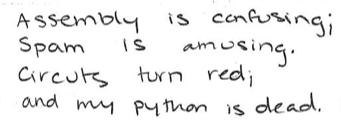 Assembly is confusing;
Spam is amusing.
Circuts turn red;
and my python is dead.